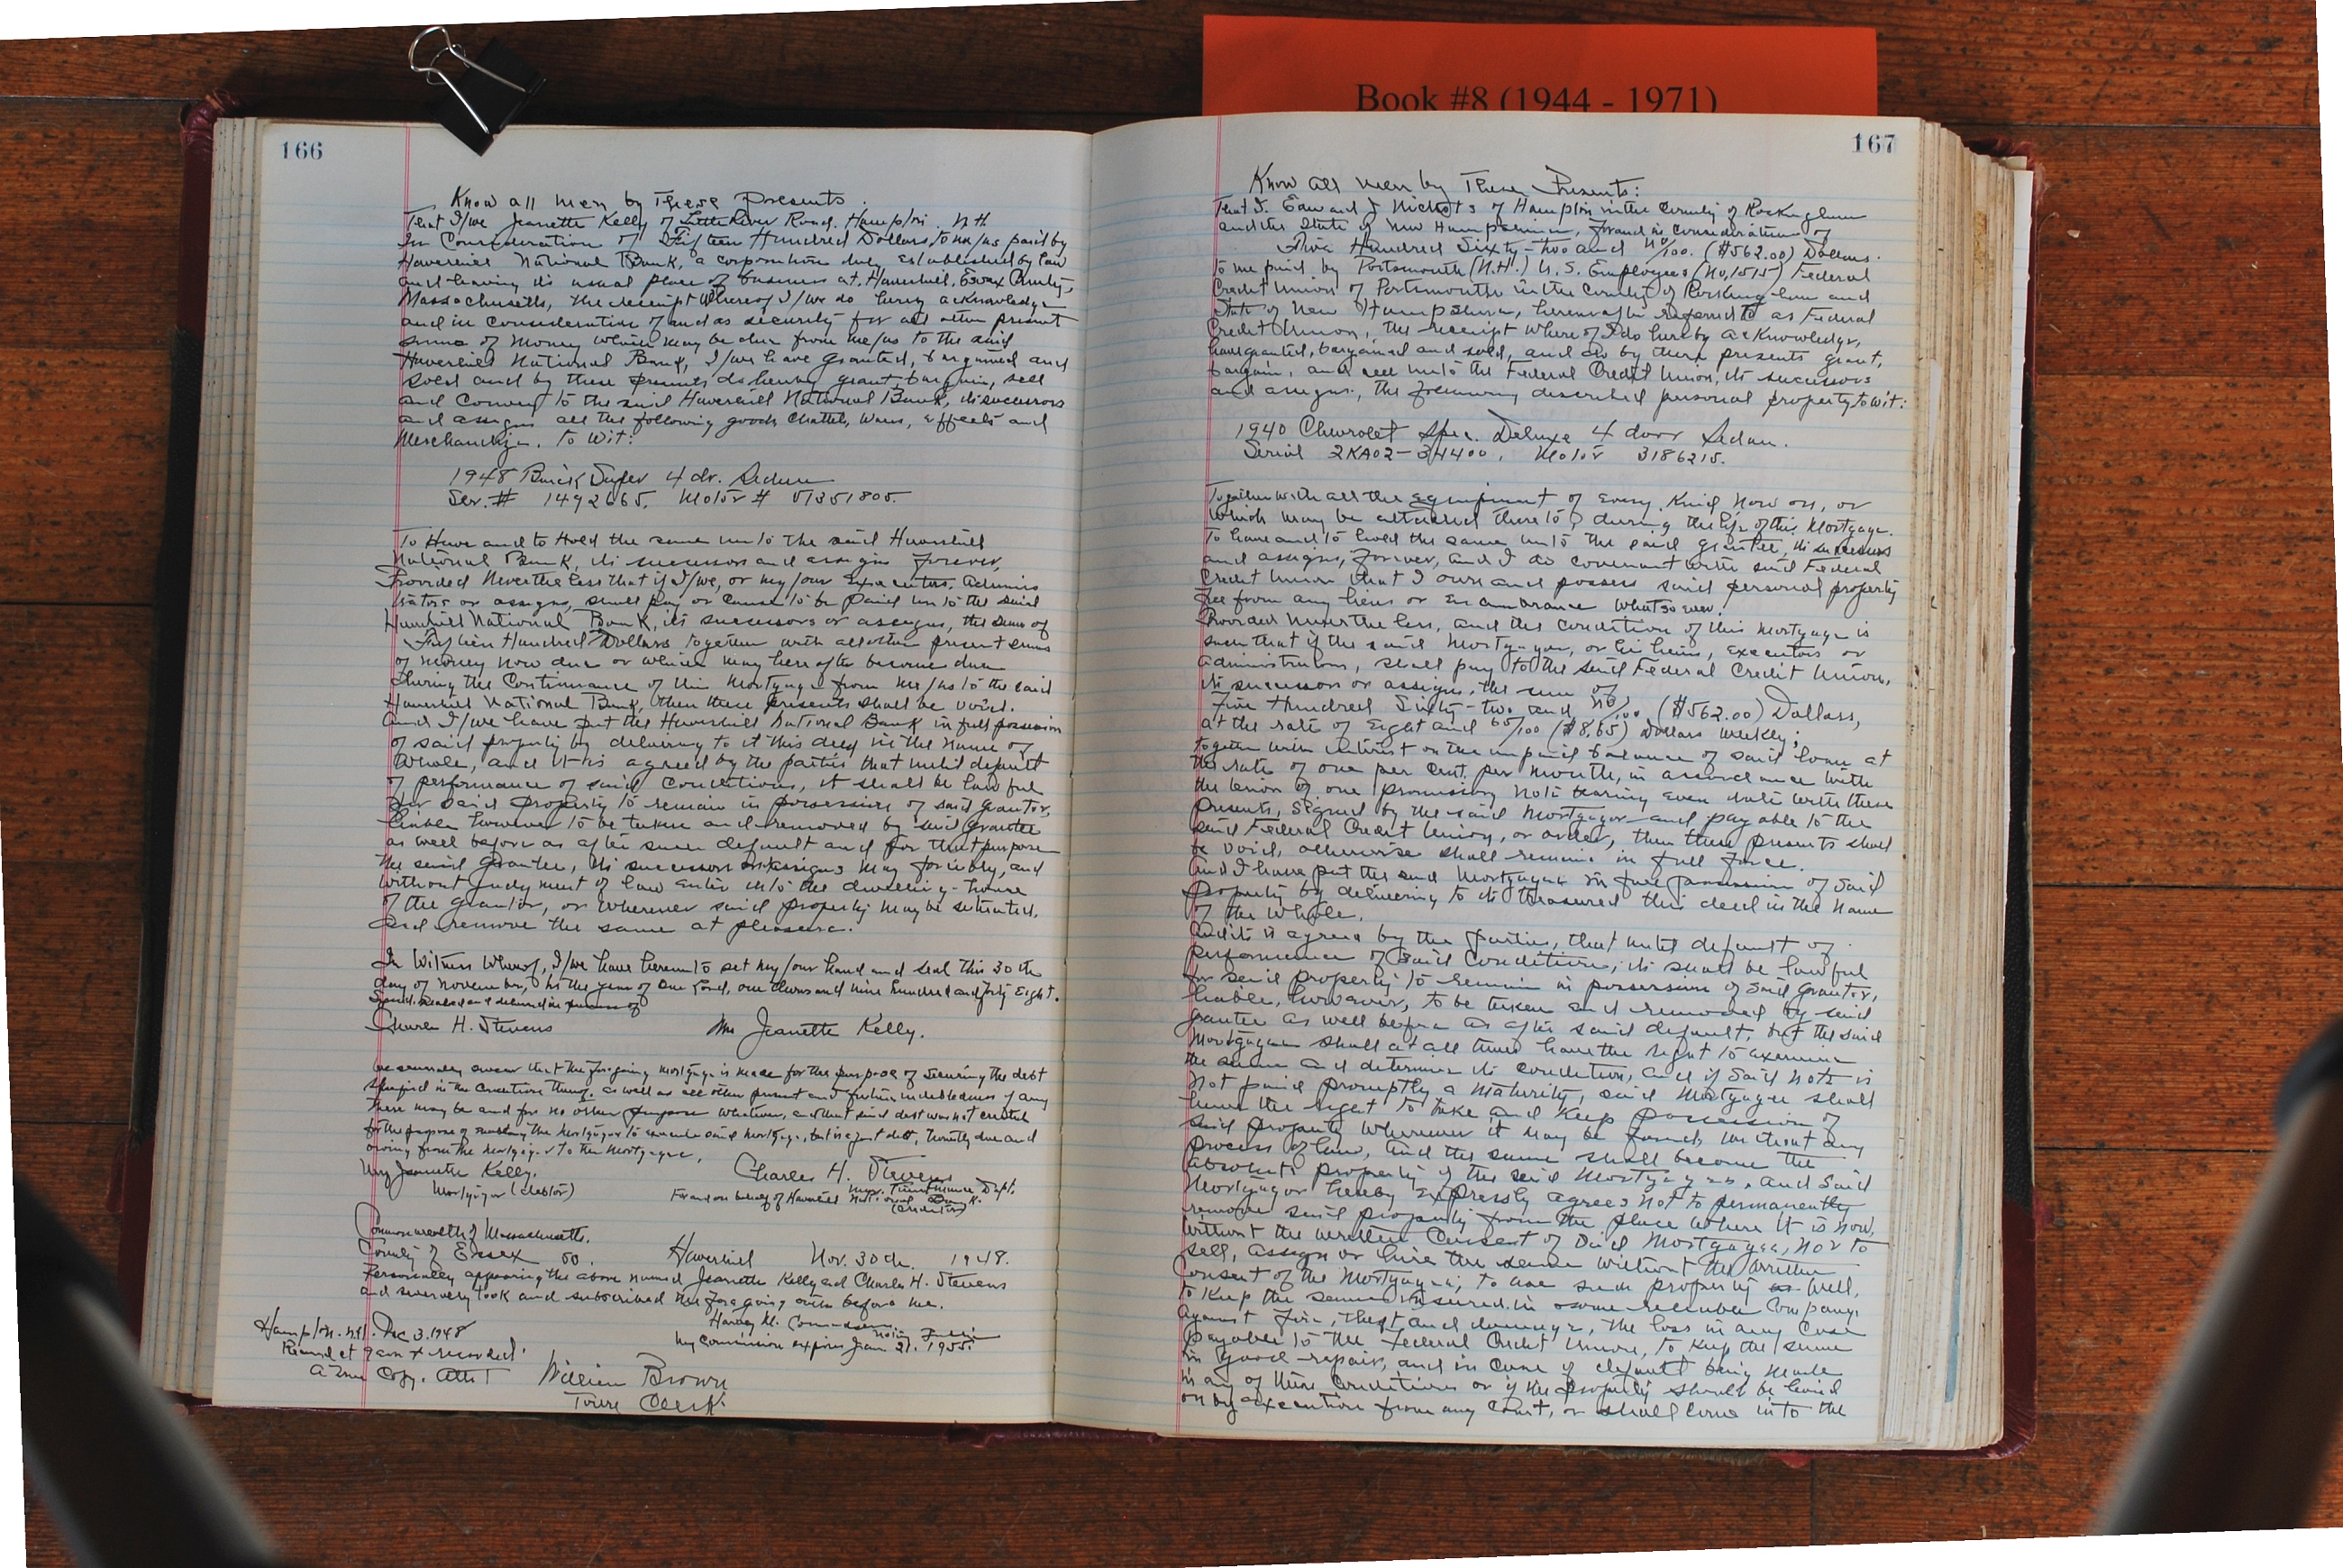 Book #8 (1944 - 1971)
166
Know all men by These Presents
That I/we Jeanette Kelly of Little River Road, Hampton N.H.
In Consideration of Fifteen Hundred Dollars, to me/us paid by
Haverhill National Bank, a corporation duly established by law
and having its usual place of business at Haverhill, Essex County,
Massachusetts, the receipt whereof I/we do hereby acknowledge
and in consideration of and as security for all other present
sums of money which may be due from me/us to the said
Haverhill National Bank, I/we have granted, bargained and
sold and by these presents do hereby grant, bargain, sell
and convey to the said Haverhill National Bank, its successors
and assigns all the following goods chattels, wares, effects and
Merchandize. To Wit:
1948 Buick Super 4 dr. Sedan
Ser. # 1492665. Motor # 51351805.
To Have and to Hold the same unto the said Haverhill
National Bank, its successors and assigns forever,
Provided Nevertheless that if I/we, or my/our executors, adminis
trators or assigns, shall pay or cause to be paid unto the said
Haverhill National Bank, its successors or assigns, the sum of
Fifteen Hundred Dollars together with all other present sums
of money now due or which may hereafter become due
during the continuance of this mortgage from me/us to the said
Haverhill National Bank, then these presents shall be void.
and I/we have put the Haverhill National Bank in full possession
of said property by delivering to it this deed in the name of
whole, and it is agreed by the parties that until default
of performance of said conditions, it shall be lawful
for said property to remain in possession of said grantor,
liable however to be taken and removed by said grantee
as well before as after such default and for that purpose
the said grantee, its successors or assigns may forcibly, and
without judgment of law enter into the dwelling-house
of the grantor, or wherever said property may be situated,
and remove the same at pleasure.
In Witness Whereof, I/we have hereunto set my/our hand and seal this 30th
day of November, in the year of our Lord, one thousand nine hundred and forty Eight.
Signed, sealed and delivered in presence of
Charles H. Stevens Mrs Jeanette Kelly.
We severally swear that the foregoing mortgage is made for the purpose of securing the debt
specified in the condition thereof, as well as all other present and future indebtedness if any
there may be and for no other purpose whatever, and that said debt was not created
for the purpose of enabling the mortgagor to execute said mortgage, but is a just debt, honestly due and
owing from the mortgagor to the mortgagee.
Mrs Jeanette Kelly. Charles H. Stevens
Mortgagor (debtor) Mgr. Time Finance Dept.
For and on behalf of Haverhill National Bank.
(Creditor)
Commonwealth of Massachusetts.
County of Essex ss. Haverhill Nov. 30th. 1948.
Personally appearing the above named Jeanette Kelly and Charles H. Stevens
and severally took and subscribed the foregoing oath before me.
Harvey M.
My Commission expires Jan 21. 1955.
Hampton. N.H. Dec 3. 1948
Received at 9 am & recorded.
A True Copy. Attest William Brown
Town Clerk.
167
Know all men by These Presents:
That I. Edward J Nichols of Hampton in the County of Rockingham
and the State of New Hampshire, for and in consideration of
Five Hundred Sixty-two and no/100. ($562.00) Dollars.
to me paid by Portsmouth (N.H.) U.S. Employees (No. 1515) Federal
Credit Union of Portsmouth in the County of Rockingham and
State of New Hampshire, hereinafter referred to as Federal
Credit Union, the receipt whereof I do hereby acknowledge,
have granted, bargained and sold, and do by these presents grant,
bargain, and sell unto the Federal Credit Union, its successors
and assigns, the following described personal property to wit:
1940 Chevrolet Spec. Deluxe 4 door Sedan.
Serial 2KA02-34400. Motor 3186215.
Together with all the equipment of every kind now on, or
which may be attached thereto, during the life of this Mortgage.
To have and to hold the same unto the said grantee, its successors
and assigns, forever, and I do covenant with said Federal
Credit Union that I own and possess said personal property
free from any liens or encumbrance whatsoever.
Provided nevertheless, and the condition of this mortgage is
such that if the said mortgagor, or his heirs, executors or
administrators, shall pay to the said Federal Credit Union,
its successors or assigns, the sum of
Five Hundred Sixty-two and no/100 ($562.00) Dollars,
at the rate of Eight and 65/100 ($8.65) Dollars weekly;
together with interest on the unpaid balance of said loan at
the rate of one per cent. per month, in accordance with
the tenor of one promissory note bearing even date with these
presents, signed by the said mortgagor and payable to the
said Federal Credit Union, or order, then these presents shall
be void, otherwise shall remain in full force.
And I have put the said mortgagee in full possession of said
property by delivering to its treasurer this deed in the name
of the whole.
And it is agreed by the parties, that until default of
performance of said conditions, it shall be lawful
for said property to remain in possession of said grantor,
liable, however, to be taken and removed by said
grantee as well before as after said default, but the said
mortgagee shall at all times have the right to examine
the same and determine its condition, and if said note is
not paid promptly a maturity, said mortgagee shall
have the right to take and keep possession of
said property wherever it may be found, without any
process of law, and the same shall become the
absolute property of the said mortgagee, and said
Mortgagor hereby expressly agrees not to permanently
remove said property from the place where it is now,
without the written consent of said mortgagee, nor to
sell, assign or hire the same without the written
consent of the Mortgagee; to use such property as well,
to keep the same insured in some reliable company,
against fire, theft and damage, the loss in any case
payable to the Federal Credit Union, to keep the same
in good repair, and in case of default being made
in any of these conditions or if the property should be levied
on by execution from any court, or shall come into the